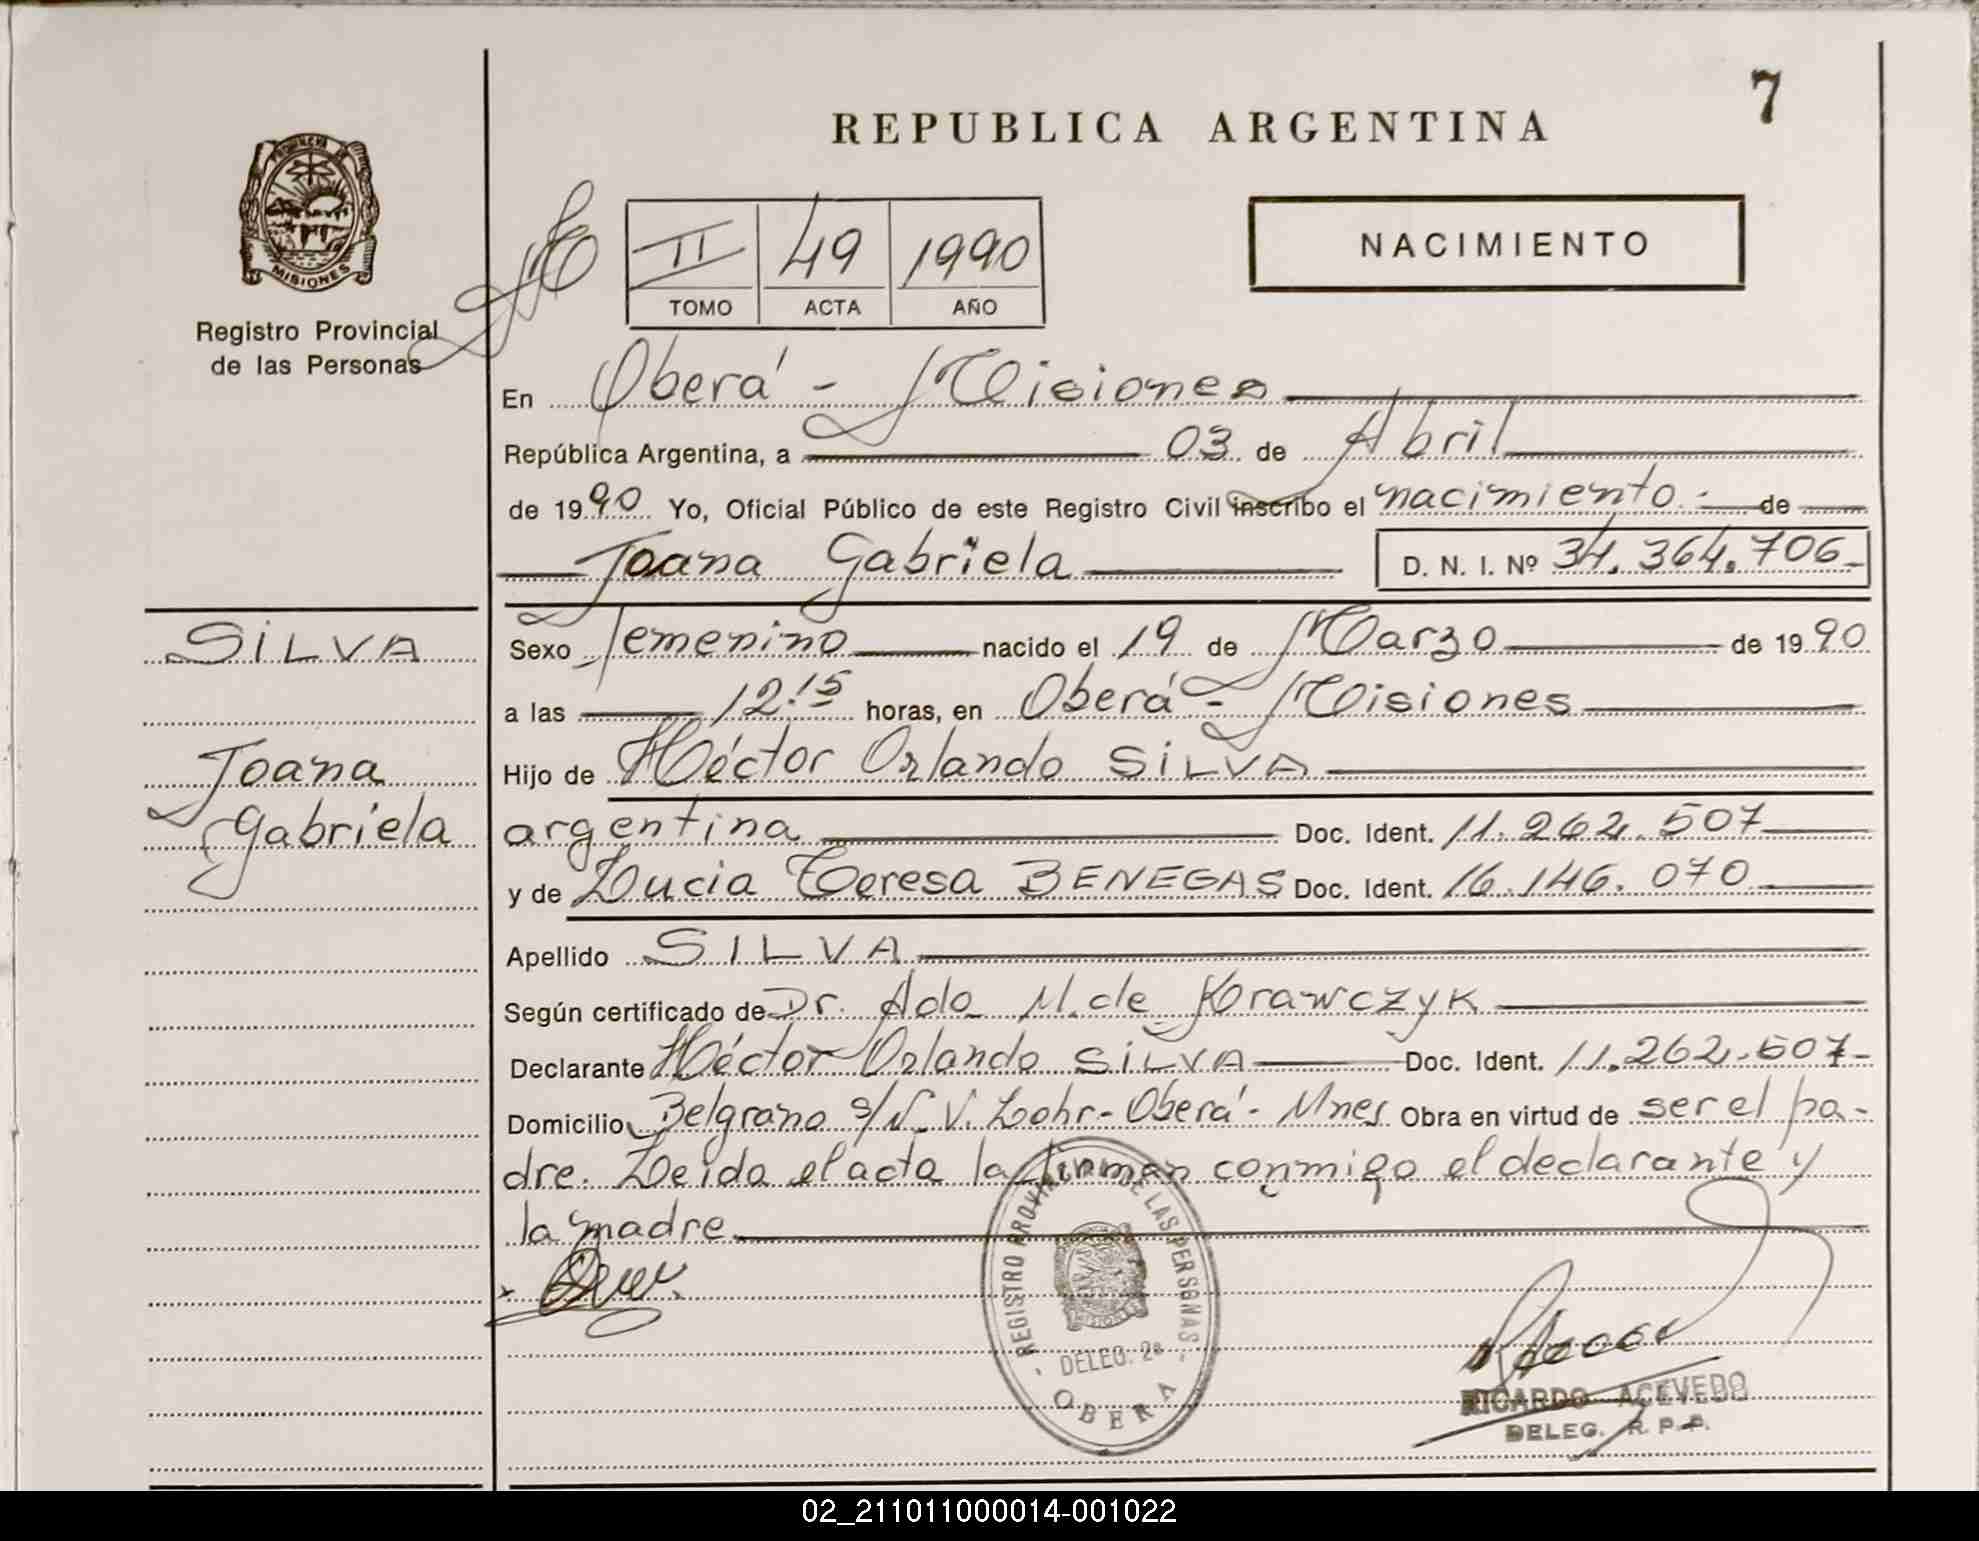 7
REPUBLICA ARGENTINA
PROVINCIA DE
MISIONES
Registro Provincial
de las Personas
II 49 1990
TOMO ACTA AÑO
NACIMIENTO
En Oberá - Misiones
República Argentina, a 03 de Abril
de 1990 Yo, Oficial Público de este Registro Civil inscribo el nacimiento.- de
Joana Gabriela D. N. I. Nº 34.364.706-
SILVA
Joana
Gabriela
Sexo Femenino nacido el 19 de Marzo de 1990
a las 12.15 horas, en Oberá - Misiones
Hijo de Héctor Orlando SILVA
argentina Doc. Ident. 11.262.507
y de Lucia Teresa BENEGAS Doc. Ident. 16.146.070
Apellido SILVA
Según certificado de Dr. Ada M. de Krawczyk
Declarante Héctor Orlando SILVA Doc. Ident. 11.262.507-
Domicilio Belgrano s/N V. Lohr - Oberá - Mnes Obra en virtud de ser el pa-
dre. Leida el acta la firman conmigo el declarante y
la madre.
REGISTRO PROVINCIAL DE LAS PERSONAS
MISIONES
- DELEG. 2a -
OBERA
RICARDO ACEVEDO
DELEG. R. P. P.
02_211011000014-001022